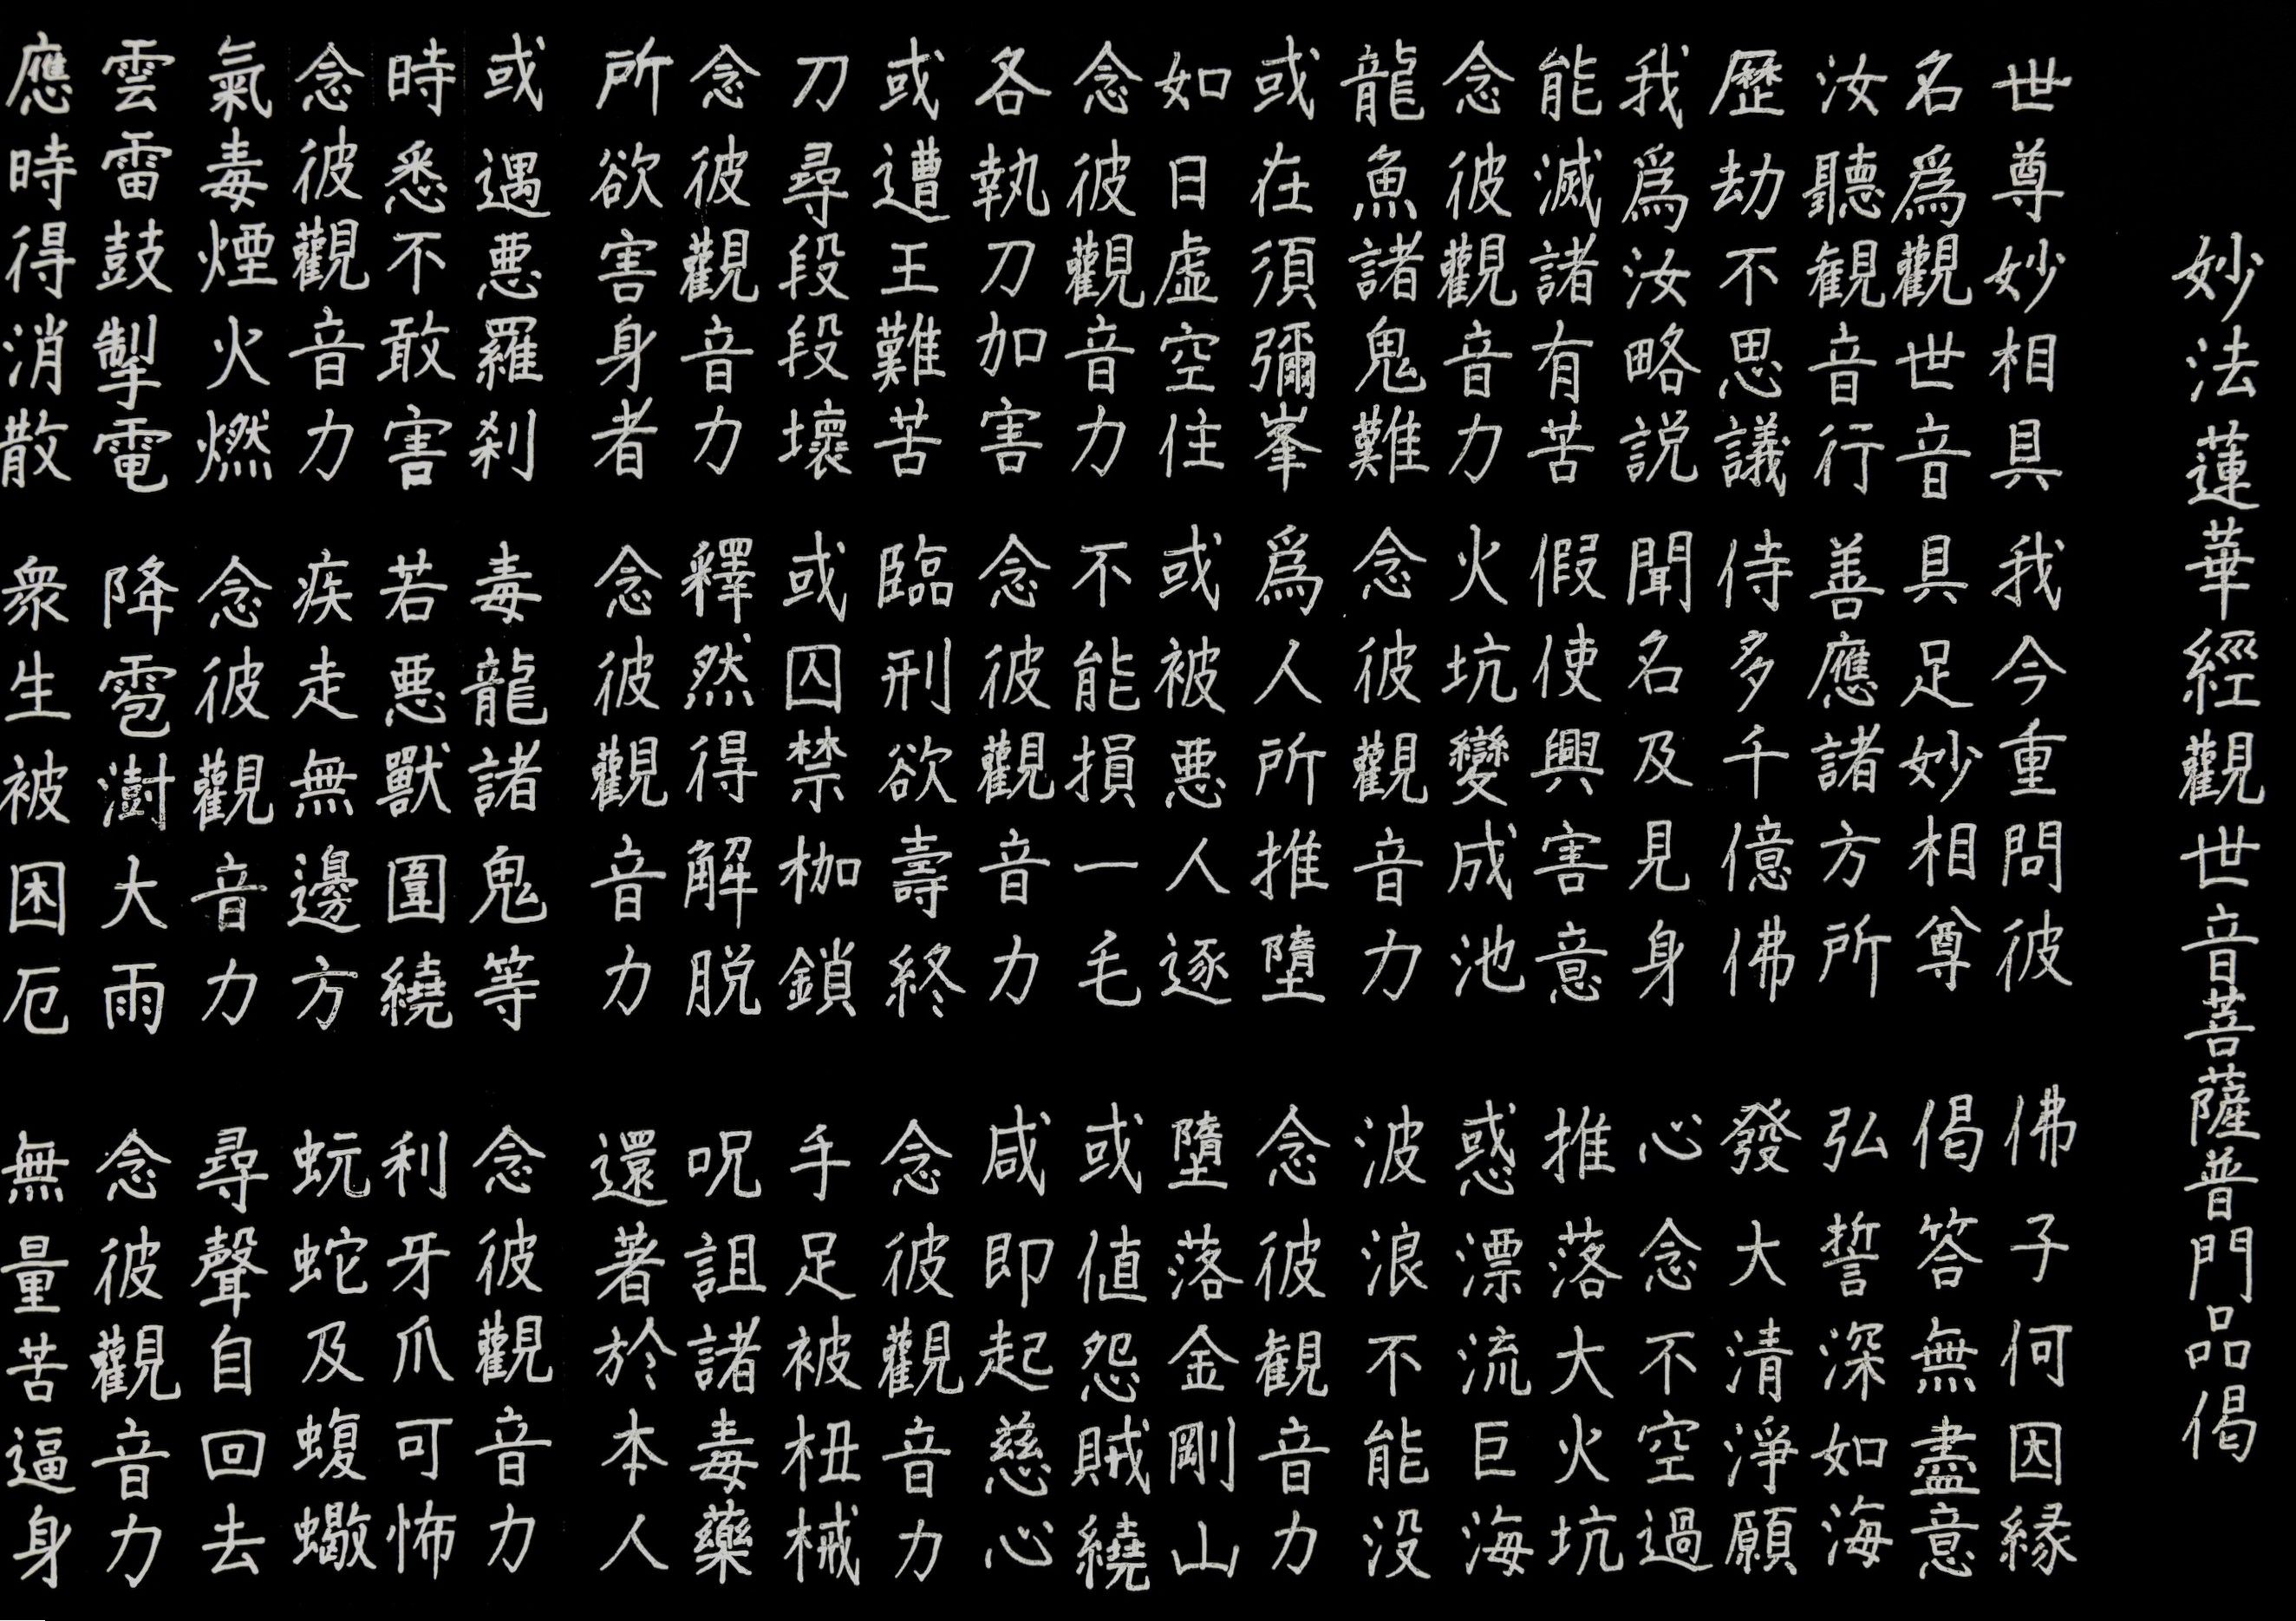 妙法蓮華經觀世音菩薩普門品偈
世尊妙相具 我今重問彼 佛子何因縁
名爲觀世音 具足妙相尊 偈答無盡意
汝聽観音行 善應諸方所 弘誓深如海
歷劫不思議 侍多千億佛 發大清淨願
我爲汝略説 聞名及見身 心念不空過
能滅諸有苦 假使興害意 推落大火坑
念彼觀音力 火坑變成池 惑漂流巨海
龍魚諸鬼難 念彼觀音力 波浪不能没
或在須彌峯 爲人所推墮 念彼観音力
如日虚空住 或被悪人逐 墮落金剛山
念彼觀音力 不能損一毛 或値怨賊繞
各執刀加害 念彼觀音力 咸即起慈心
或遭王難苦 臨刑欲壽終 念彼觀音力
刀尋段段壞 或囚禁枷鎖 手足被杻械
念彼觀音力 釋然得解脱 呪詛諸毒藥
所欲害身者 念彼觀音力 還著於本人
或遇悪羅刹 毒龍諸鬼等 念彼觀音力
時悉不敢害 若悪獸圍繞 利牙爪可怖
念彼觀音力 疾走無邊方 蚖蛇及蝮蠍
氣毒煙火燃 念彼觀音力 尋聲自回去
雲雷鼓掣電 降雹澍大雨 念彼觀音力
應時得消散 衆生被困厄 無量苦逼身